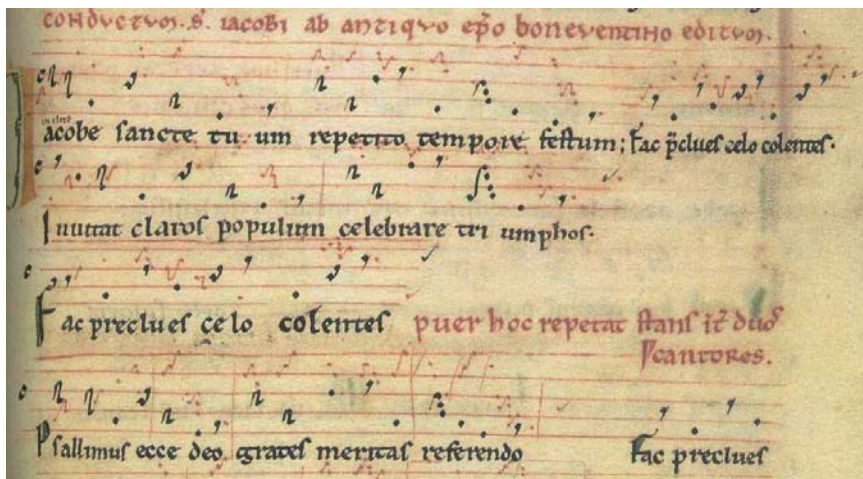 conductum. s. iacobi ab antiquo ep̃o boneventino editum.
Iacobe sancte tu um repetito tempore festum; fac p̃clues celo colentes.
Inuitat claros populum celebrare tri umphos.
Fac preclues celo colentes puer hoc repetat stans it̃ duos
cantores.
Psallimus ecce deo grates meritas referendo Fac preclues